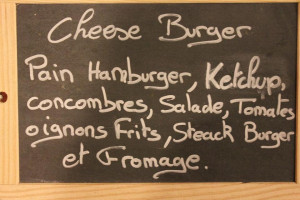 Cheese Burger
Pain Hamburger, Ketchup,
concombres, Salade, Tomates
oignons Frits, Steack Burger
et Fromage.